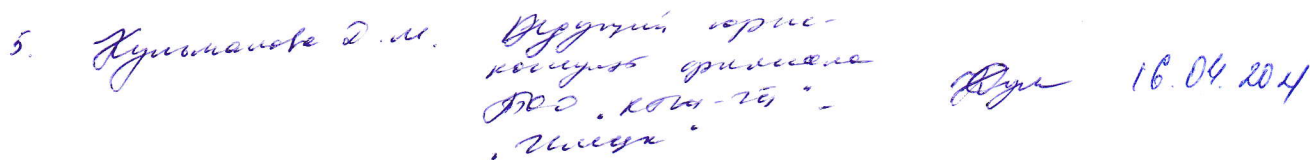 5. Кульманова Д.М. Ведущий юрис-
консульт филиала
ТОО "КТЖ-ГП" -
"Илецк"
16.04.2021